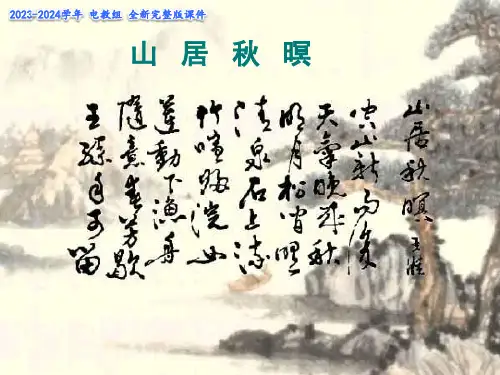 2023-2024学年 电教组 全新完整版课件
山 居 秋 暝
山居秋暝 王維
空山新雨後
天氣晚來秋
明月松間照
清泉石上流
竹喧歸浣女
蓮動下漁舟
隨意春芳歇
王孫自可留